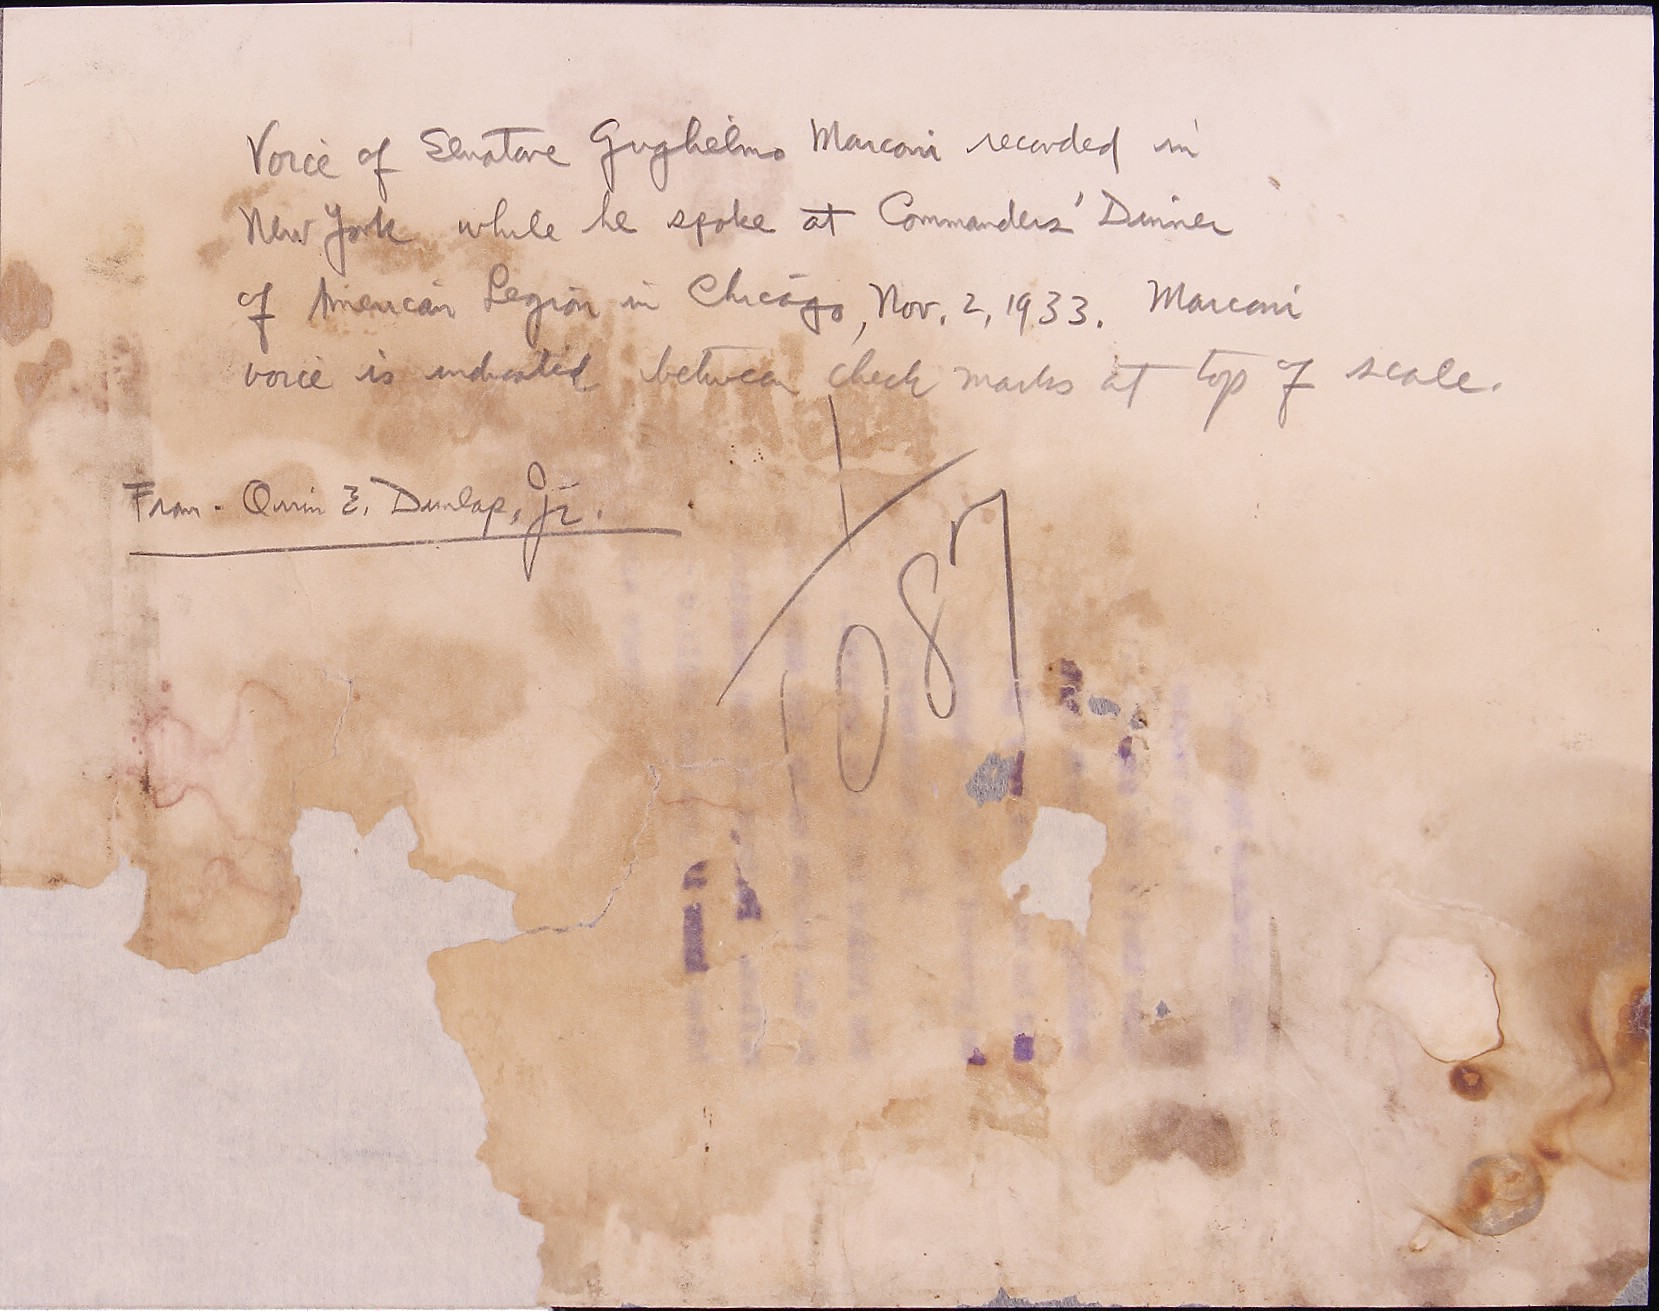 Voice of Senatore Guglielmo Marconi recorded in
New York while he spoke at Commanders' Dinner
of American Legion in Chicago, Nov. 2, 1933. Marconi
voice is indicated between check marks at top of scale.
From - Orrin E. Dunlap, Jr.
1087